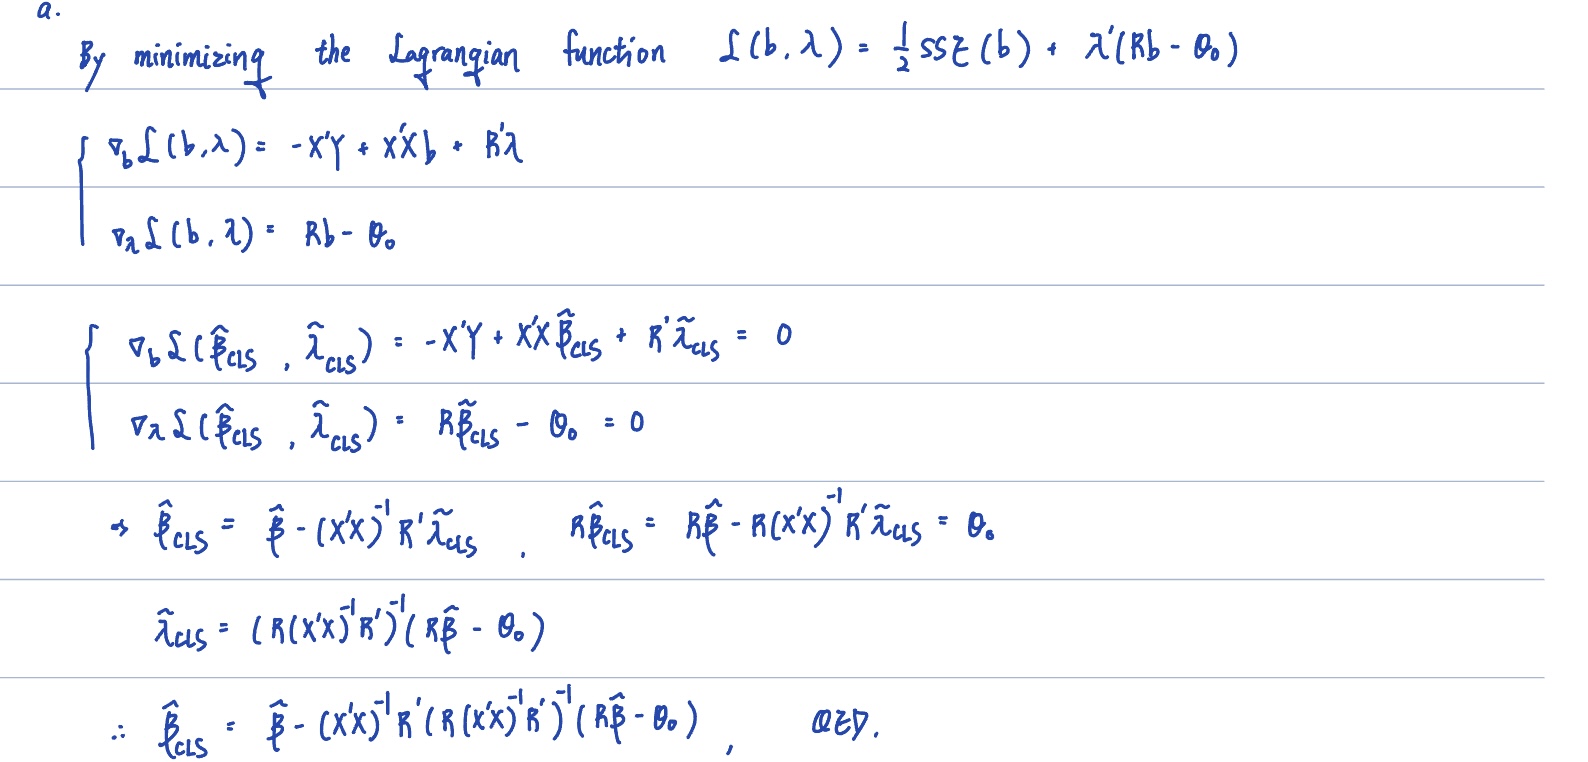 a.
By minimizing the Lagrangian function ℒ(b, λ) = 1/2 SSE(b) + λ'(Rb - θ₀)
∇_b ℒ(b, λ) = -X'Y + X'Xb + R'λ
∇_λ ℒ(b, λ) = Rb - θ₀
∇_b ℒ(β̂_CLS, λ̃_CLS) = -X'Y + X'Xβ̂_CLS + R'λ̃_CLS = 0
∇_λ ℒ(β̂_CLS, λ̃_CLS) = Rβ̃_CLS - θ₀ = 0
⇒ β̂_CLS = β̂ - (X'X)⁻¹R'λ̃_CLS , Rβ̂_CLS = Rβ̂ - R(X'X)⁻¹R'λ̃_CLS = θ₀
λ̃_CLS = (R(X'X)⁻¹R')⁻¹(Rβ̂ - θ₀)
∴ β̂_CLS = β̂ - (X'X)⁻¹R'(R(X'X)⁻¹R')⁻¹(Rβ̂ - θ₀) , QED.